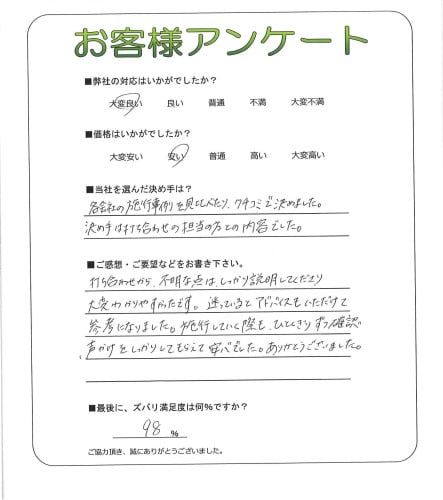 お客様アンケート
■弊社の対応はいかがでしたか？
大変良い 良い 普通 不満 大変不満
■価格はいかがでしたか？
大変安い 安い 普通 高い 大変高い
■当社を選んだ決め手は？
各会社の施行事例を見比べたり、クチコミで決めました。
決め手は打ち合わせの担当の方との内容でした。
■ご感想・ご要望などをお書き下さい。
打ち合わせから、不明な点は、しっかり説明してくださり
大変わかりやすかったです。迷っているとアドバイスもいただけて
参考になりました。施行していく際も、ひとつひとつずつ確認、
声かけをしっかりしてもらえて安心でした。ありがとうございました。
■最後に、ズバリ満足度は何%ですか？
98 %
ご協力頂き、誠にありがとうございました。